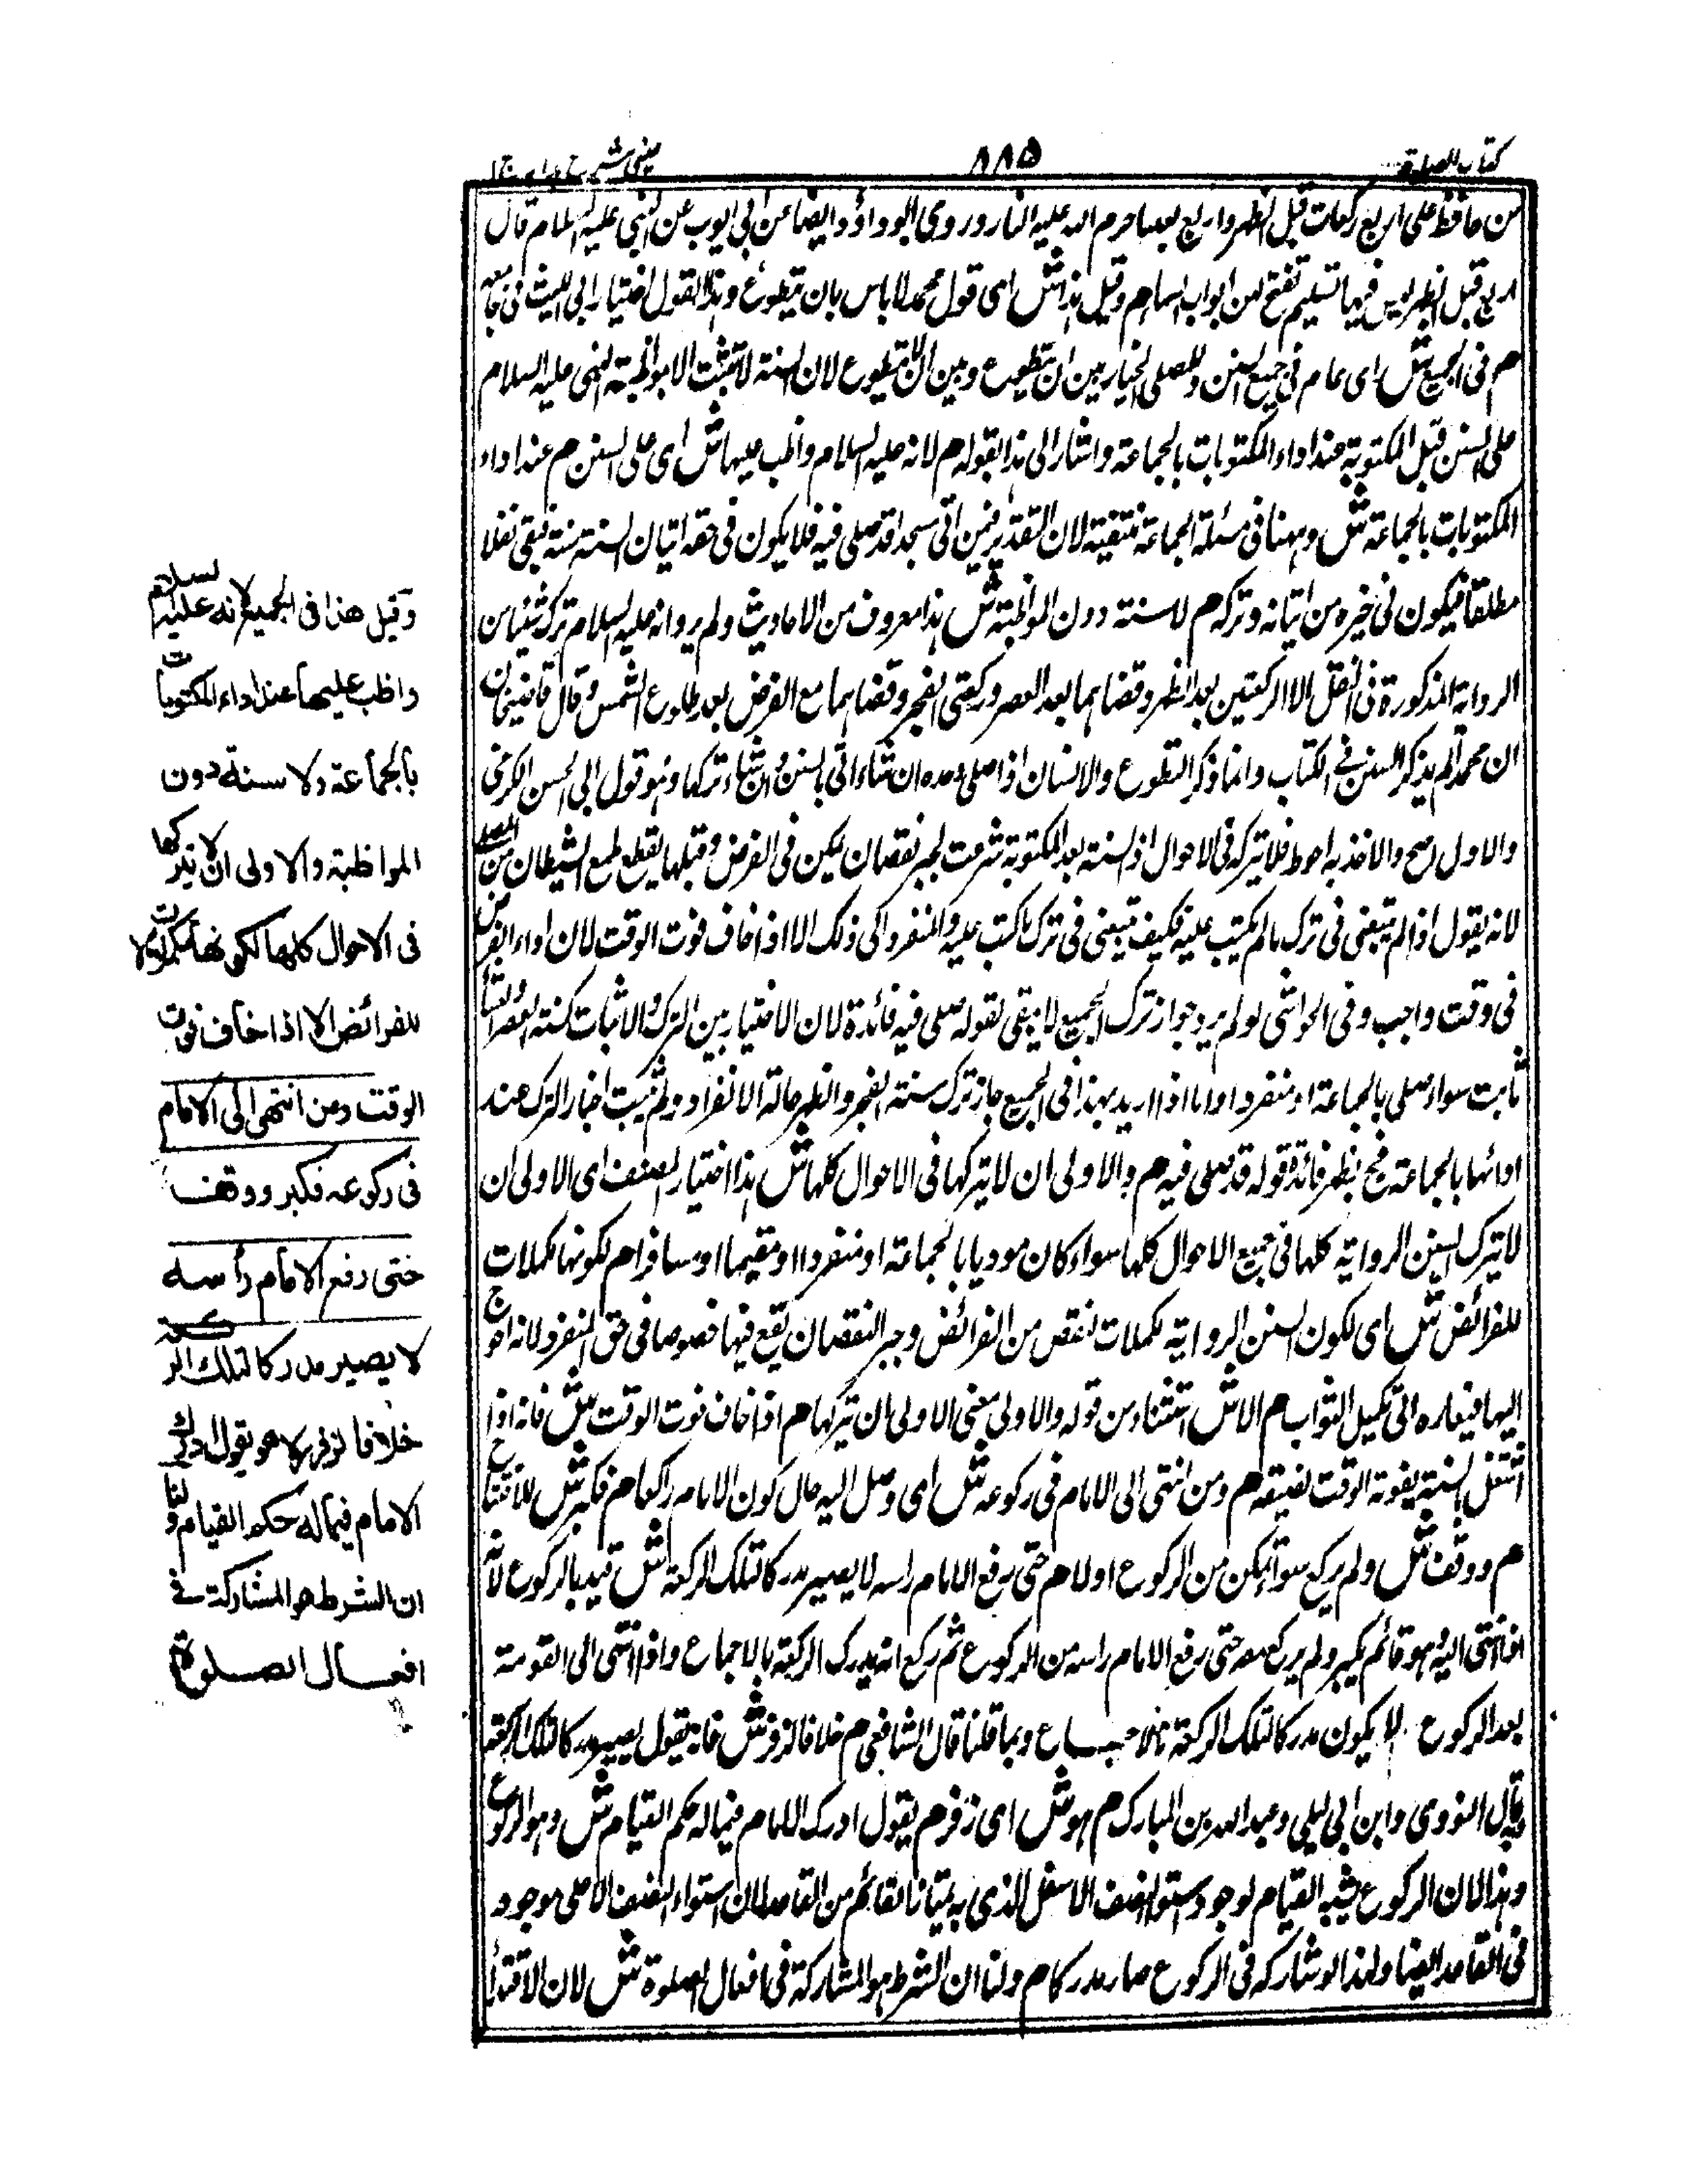 كتاب الصلوة
٨٨٥
عيني شرح هداية ج ١
من حافظ على اربع ركعات قبل الظهر واربع بعدها حرم الله عليه النار وروى ابو داؤد ايضا عن ابي ايوب عن النبي عليه السلام قال
اربع قبل الظهر ليس فيها تسليم تفتح لهن ابواب السماء م وقيل هذا ش اى قول محمد لا باس بان يتطوع وهذا القول اختيار ابي الليث فى جامعه
م فى الجميع ش اى عام فى جميع السنن وللمصلى الخيار بين ان يتطوع وبين ان لا يتطوع لان السنة لا تثبت الا بمواظبة النبى عليه السلام
على السنن قبل المكتوبة عند اداء المكتوبات بالجماعة واشار الى هذا بقوله م لانه عليه السلام واظب عليها ش اى على السنن م عند اداء
المكتوبات بالجماعة ش وههنا فى مسئلة الجماعة منتفية لان التقدير فيمن اتى مسجدا قد صلى فيه فلا يكون فى حقه اتيان السنة سنة فبقى نفلا
مطلقا فيكون فى خيرة من اتيانه وتركه م لا سنة دون المواظبة ش هذا معروف من الاحاديث ولم يرو انه عليه السلام ترك شيئا من
الرواية المذكورة فى النفل الا الركعتين بعد الظهر وقضاهما بعد العصر وركعتى الفجر وقضاهما مع الفرض بعد طلوع الشمس وقال قاضيخان
ان محمدا لم يذكر السنن فى الكتاب وانما ذكر التطوع والانسان اذا صلى وحده ان شاء اتى بالسنن وان شاء تركها وهو قول ابي الحسن الكرخى
والاول اصح والاخذ به احوط فلا يترك فى الاحوال اذ السنة بعد المكتوبة شرعت لجبر نقصان يمكن فى الفرض وقبلها يقطع طمع الشيطان من المصلى
لانه يقول اذا لم يتبعنى فى ترك ما لم يكتب عليه فكيف يتبعنى فى ترك ما كتب عليه والمنفرد الى ذلك الا اذا خاف فوت الوقت لان اداء الفرض
فى وقت واجب وفى الحواشى لو لم يرد جواز ترك الجميع لا يبقى لقوله صلى فيه فائدة لان الاختيار بين الترك والاثبات كسنة العصر والعشاء
ثابت سواء صلى بالجماعة او منفردا واما اذا اريد بهذا فى الجميع جاز ترك سنة الفجر والظهر حالة الانفراد ولم يثبت اخبار الترك عند
ادائها بالجماعة فح يظهر فائدة قوله قد صلى فيه م والاولى ان لا يتركها فى الاحوال كلها ش هذا اختيار المصنف اى الاولى ان
لا يترك السنن الرواية كلها فى جميع الاحوال كلها سواء كان موديا بالجماعة او منفردا او مقيما او مسافرا م لكونها مكملات
للفرائض ش اى لكون السنن الرواية مكملات لنقص من الفرائض وجبر النقصان يقع فيها خصوصا فى حق المنفرد لانه احوج
اليها لافتقاره الى تكميل الثواب م الا ش استثناء من قوله والاولى يعنى الاولى ان يتركها م اذا خاف فوت الوقت ش فانه اذا
اشتغل بالسنة يفوته الوقت لضيقه م ومن انتهى الى الامام فى ركوعه ش اى وصل اليه حال كون الامام راكعا م فكبر ش للافتتاح
م ووقف ش ولم يركع سواء تمكن من الركوع او لا م حتى رفع الامام راسه لا يصير مدركا لتلك الركعة ش قيد بالركوع لانه
اذا انتهى اليه وهو قائم فكبر ولم يركع معه حتى رفع الامام راسه من الركوع ثم ركع انه يدرك الركعة بالاجماع واذا انتهى الى القومة
بعد الركوع لا يكون مدركا لتلك الركعة بالاجماع وبما قلنا قال الشافعى م خلافا لزفر ش فانه يقول يصير مدركا لتلك الركعة
وبه قال الثورى وابن ابي ليلى وعبد الله بن المبارك م هو ش اى زفر م يقول ادرك الامام فيما له حكم القيام ش وهو الركوع
وهذا لان الركوع يشبه القيام لوجود استواء النصف الاسفل الذى به يمتاز القائم من القاعد لان استواء النصف الاعلى موجود
فى القاعد ايضا ولهذا لو شاركه فى الركوع صار مدركا م ولنا ان الشرط هو المشاركة فى افعال الصلوة ش لان الاقتداء
وقيل هذا فى الجميع لانه عليه السلام
واظب عليها عند اداء المكتوبات
بالجماعة ولا سنة دون
المواظبة والاولى ان لا يتركها
فى الاحوال كلها لكونها مكملات
للفرائض الا اذا خاف فوت
الوقت ومن انتهى الى الامام
فى ركوعه فكبر ووقف
حتى رفع الامام رأسه
لا يصير مدركا لتلك الركعة
خلافا لزفر رح هو يقول ادرك
الامام فيما له حكم القيام ولنا
ان الشرط هو المشاركة فى
افعال الصلوة